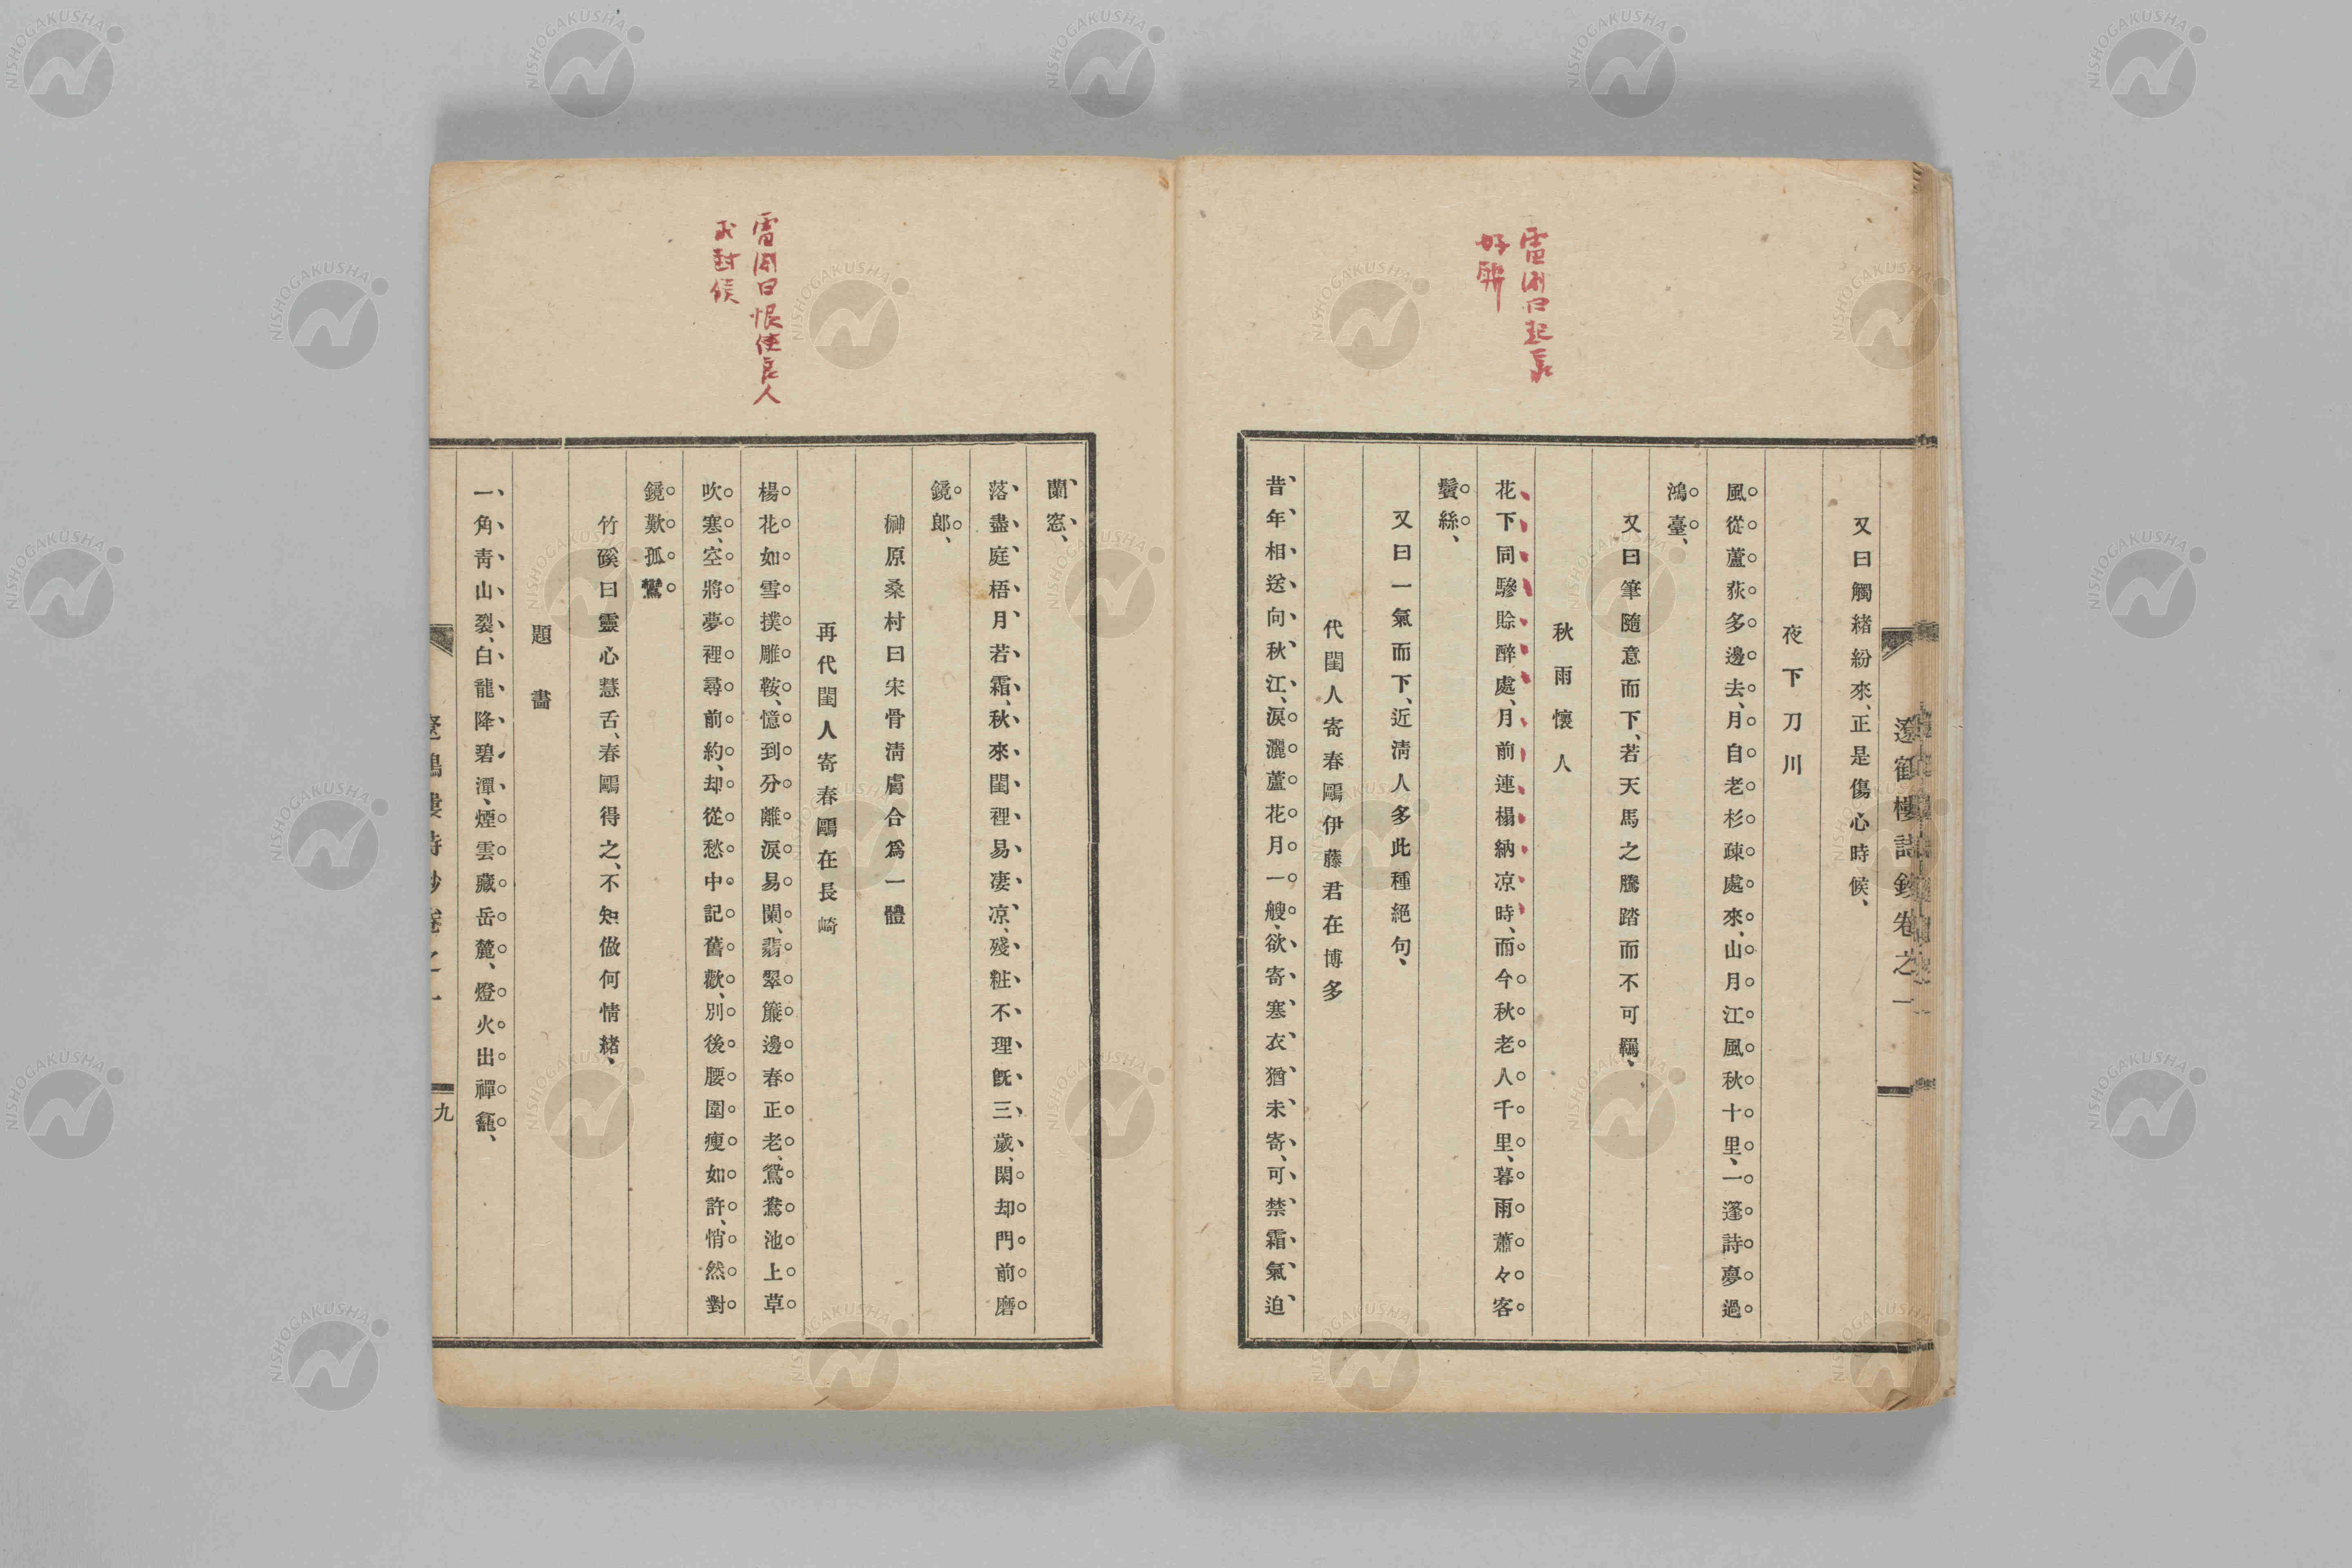 雷淵曰起承
好聯
遼鶴樓詩鈔卷之一
又曰觸緒紛來、正是傷心時候、
夜下刀川
風從蘆荻多邊去、月自老杉疎處來、山月江風秋十里、一篷詩夢過
鴻臺、
又曰筆隨意而下、若天馬之騰踏而不可羈、
秋雨懷人
花下同驂賖醉處、月前連榻納凉時、而今秋老人千里、暮雨蕭々客
鬢絲、
又曰一氣而下、近淸人多此種絕句、
代閨人寄春鷗伊藤君在博多
昔年相送向秋江、淚灑蘆花月一艘、欲寄寒衣猶未寄、可禁霜氣迫
雷淵曰恨使良人
求封侯
蘭窓、
落盡庭梧月若霜、秋來閨裡易凄凉、殘粧不理旣三歲、閑却門前磨
鏡郎、
榊原桑村曰宋骨淸膚合爲一體
再代閨人寄春鷗在長崎
楊花如雪撲雕鞍、憶到分離淚易闌、翡翠簾邊春正老、鴛鴦池上草
吹寒、空將夢裡尋前約、却從愁中記舊歡、別後腰圍瘦如許、悄然對
鏡歎孤鸞
竹磎曰靈心慧舌、春鷗得之、不知做何情緒、
題畵
一角靑山裂、白龍降碧潭、煙雲藏岳麓、燈火出禪龕、
九
NISHOGAKUSHA